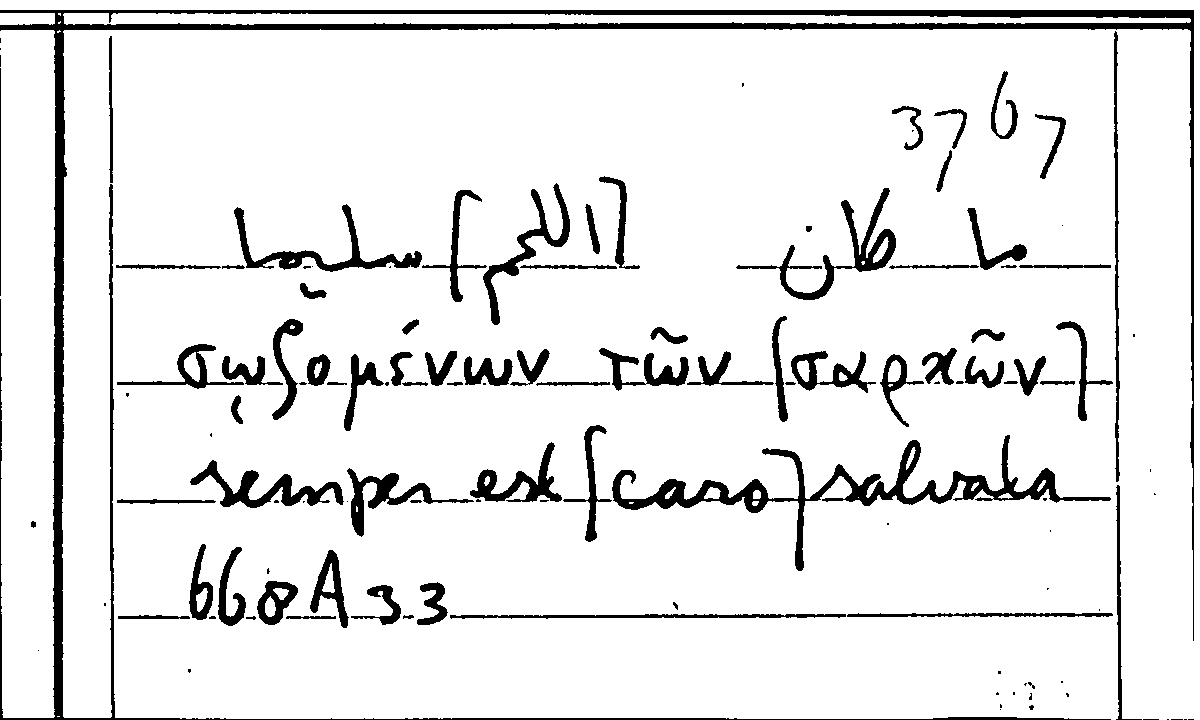 3767
ما كان [اللحم] سليما
σῳζομένων τῶν [σαρκῶν]
semper est [caro] salvata
668A33